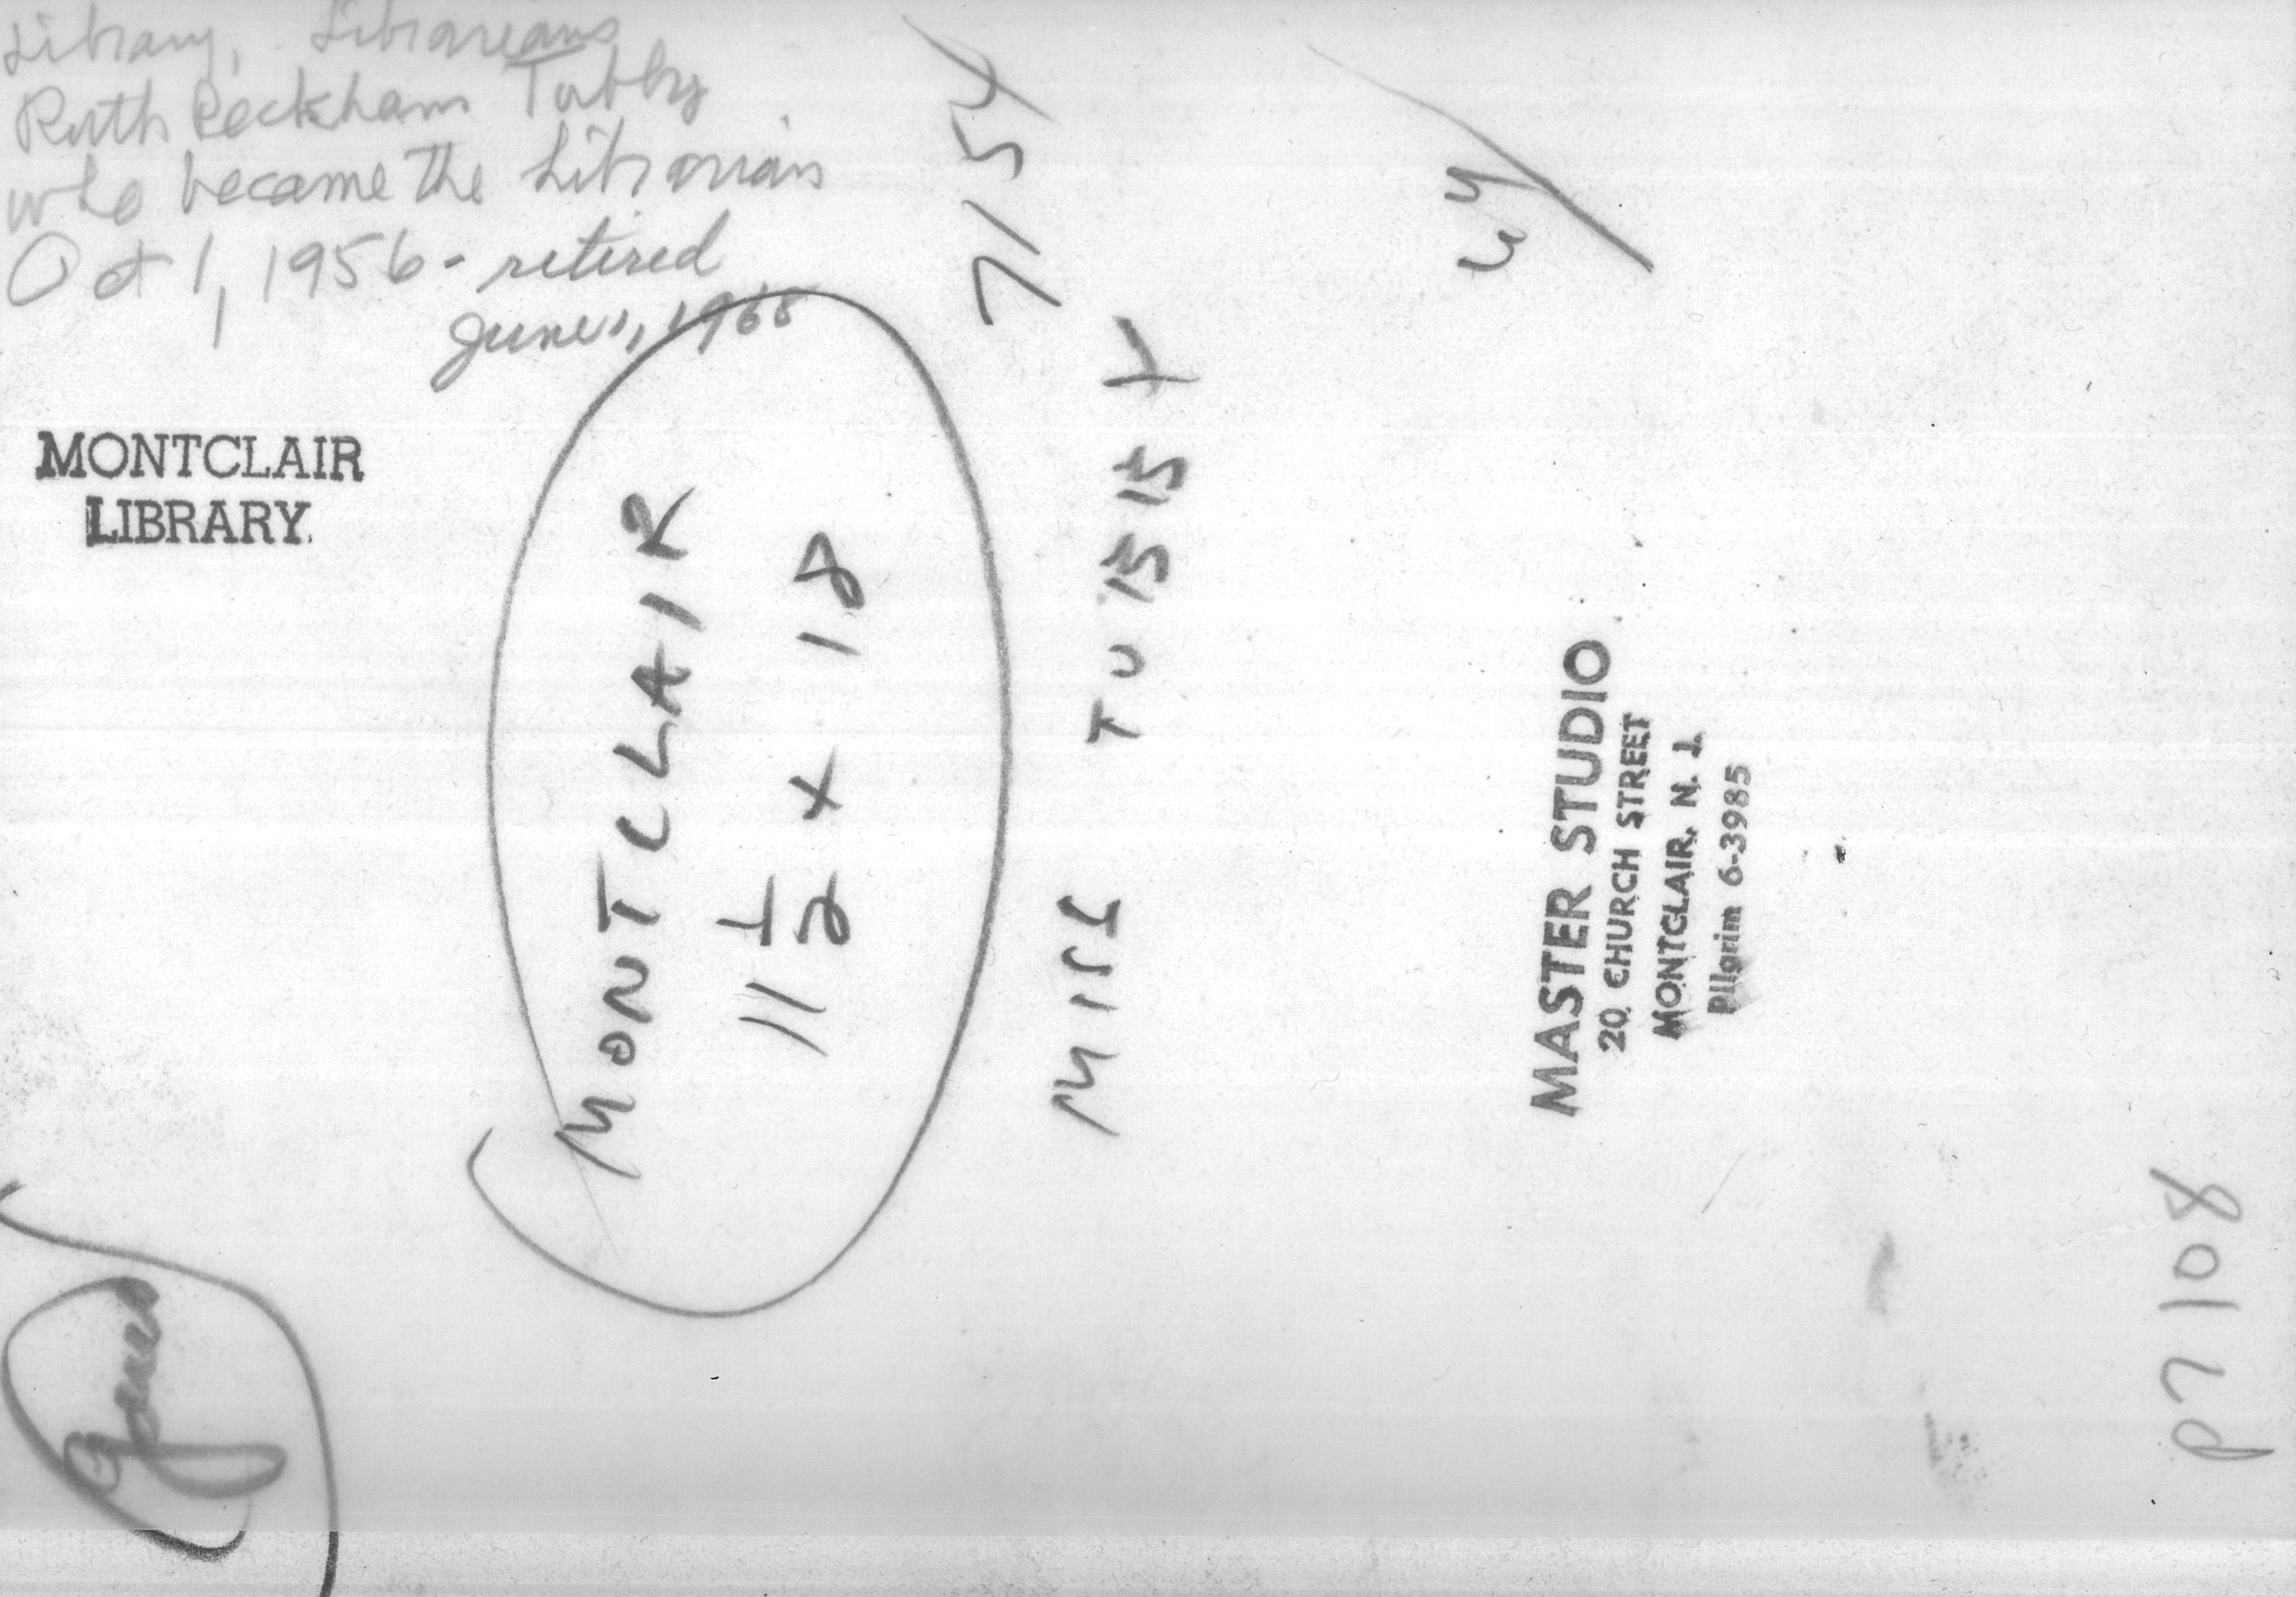 Library, Librarians
Ruth Peckham Tubby
who became the Librarian
Oct 1, 1956 - retired
June 1, 1968
MONTCLAIR
LIBRARY
MONTCLAIR
11 1/2 X 18
7/54
MISS TUBBY
MASTER STUDIO
20 CHURCH STREET
MONTCLAIR, N. J.
PIlgrim 6-3985
P7108